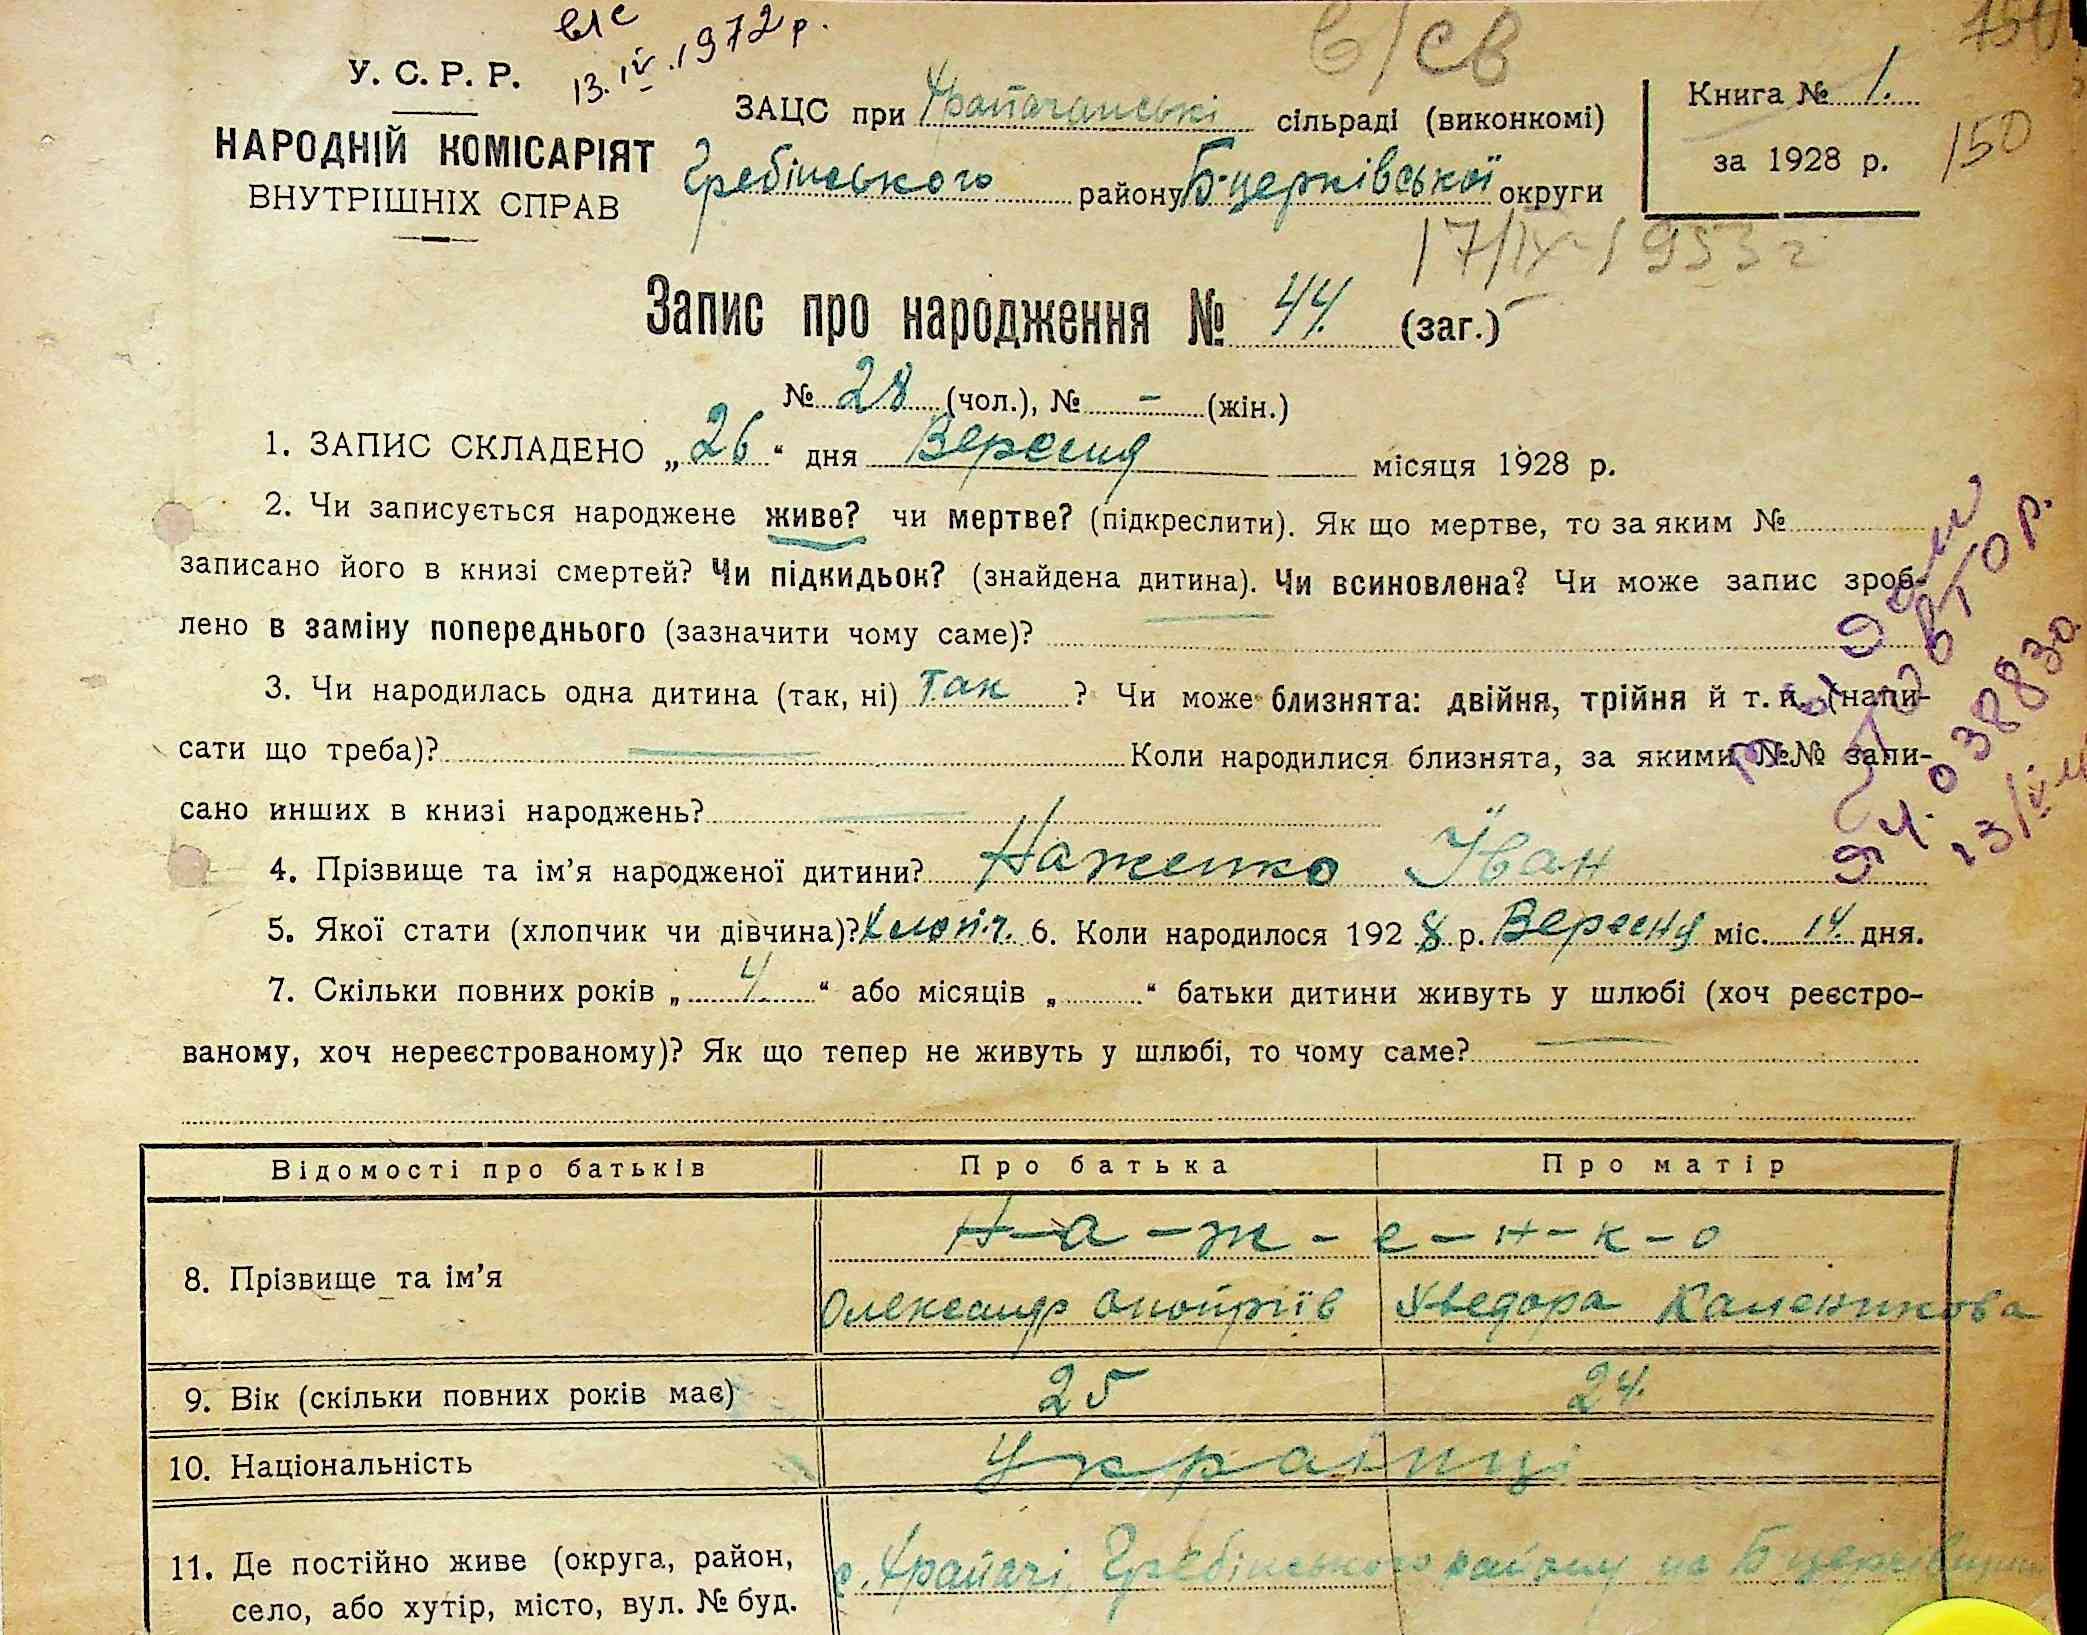 13.IV.1972 р.
У. С. Р. Р.
НАРОДНІЙ КОМІСАРІЯТ
ВНУТРІШНІХ СПРАВ
ЗАЦС при Храпачанські сільраді (виконкомі)
Гребінського району Б-церківської округи
Книга № 1.
за 1928 р.
150
150
17/IX-1953 г
Запис про народження № 44. (заг.)
№ 28 (чол.), № – (жін.)
1. ЗАПИС СКЛАДЕНО „26“ дня Вересня місяця 1928 р.
2. Чи записується народжене живе? чи мертве? (підкреслити). Як що мертве, то за яким №
записано його в книзі смертей? Чи підкидьок? (знайдена дитина). Чи всиновлена? Чи може запис зроб-
лено в заміну попереднього (зазначити чому саме)?
3. Чи народилась одна дитина (так, ні) Так ? Чи може близнята: двійня, трійня й т. и. (напи-
сати що треба)? Коли народилися близнята, за якими №№ запи-
сано инших в книзі народжень?
4. Прізвище та ім’я народженої дитини? Наженко Іван
5. Якої стати (хлопчик чи дівчина)? Хлопч. 6. Коли народилося 1928 р. Вересня міс. 14. дня.
7. Скільки повних років „4“ або місяців „ “ батьки дитини живуть у шлюбі (хоч реєстро-
ваному, хоч нереєстрованому)? Як що тепер не живуть у шлюбі, то чому саме?
повтор.
038830
Відомості про батьків Про батька Про матір
8. Прізвище та ім’я Н-а-ж-е-н-к-о
Олександр Онопріїв Хведора Каленикова
9. Вік (скільки повних років має) 25 24.
10. Національність Українці
11. Де постійно живе (округа, район, с. Храпачі, Гребінського району на Б церківщині
село, або хутір, місто, вул. № буд.